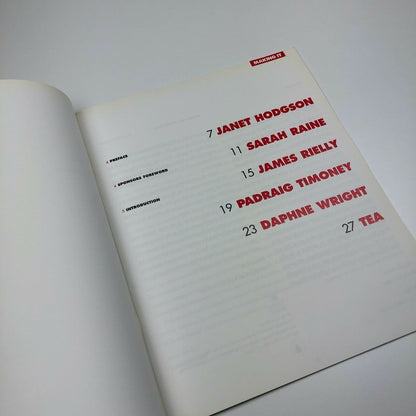 MAKING IT
PREFACE
SPONSORS FOREWORD
INTRODUCTION
7 JANET HODGSON
11 SARAH RAINE
15 JAMES RIELLY
19 PADRAIG TIMONEY
23 DAPHNE WRIGHT
27 TEA